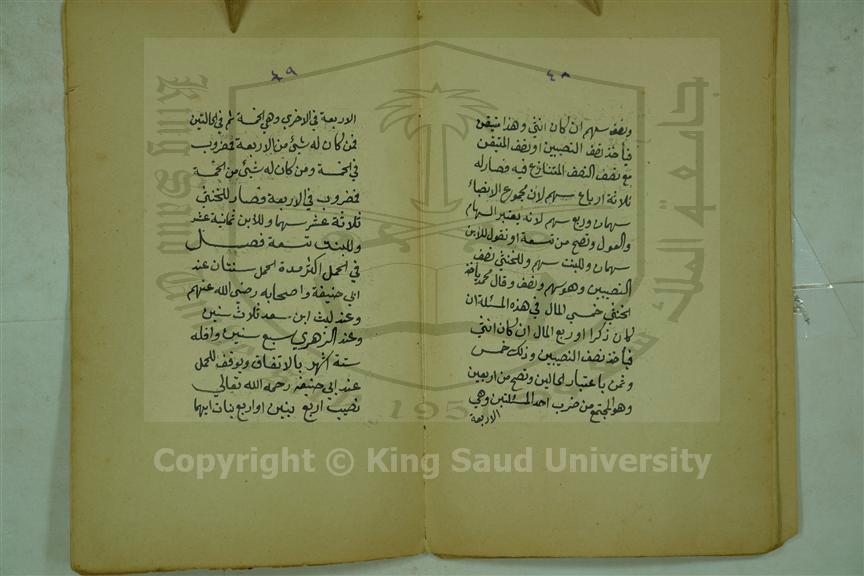 ٤٨
ونصف سهم ان كان انثى وهذا متيقن
فيأخذ نصف النصيبين او نصف المتيقن
مع نصف النصف المتنازع فيه فصار له
ثلاثة ارباع سهم لان مجموع الانصباء
سهمان وربع سهم لانه يعتبر السهام
والعول وتصح من تسعة او نقول للابن
سهمان وللبنت سهم وللخنثى نصف
النصيبين وهو سهم ونصف وقال محمد يأخذ
الخنثى خمسى المال في هذه المسئلة ان
كان ذكرا او ربع المال ان كان انثى
فيأخذ نصف النصيبين وذلك خمس
وثمن باعتبار الحالين وتصح من اربعين
وهو المجتمع من ضرب احد المسئلتين وهي
الاربعة
٤٩
الاربعة في الاخرى وهي الخمسة ثم في الحالتين
فمن كان له شئ من الاربعة فمضروب
في الخمسة ومن كان له شئ من الخمسة
فمضروب في الاربعة فصار للخنثى
ثلاثة عشر سهما وللابن ثمانية عشر
وللبنت تسعة فصل
في الحمل اكثر مدة الحمل سنتان عند
ابي حنيفة واصحابه رضى الله عنهم
وعند ليث ابن سعد ثلاث سنين
وعند الزهري سبع سنين واقله
ستة اشهر بالاتفاق ويوقف للحمل
عند ابي حنيفة رحمه الله تعالى
نصيب اربع بنين او اربع بنات ايهما
جامعة الملك سعود
King Saud University
195
Copyright © King Saud University